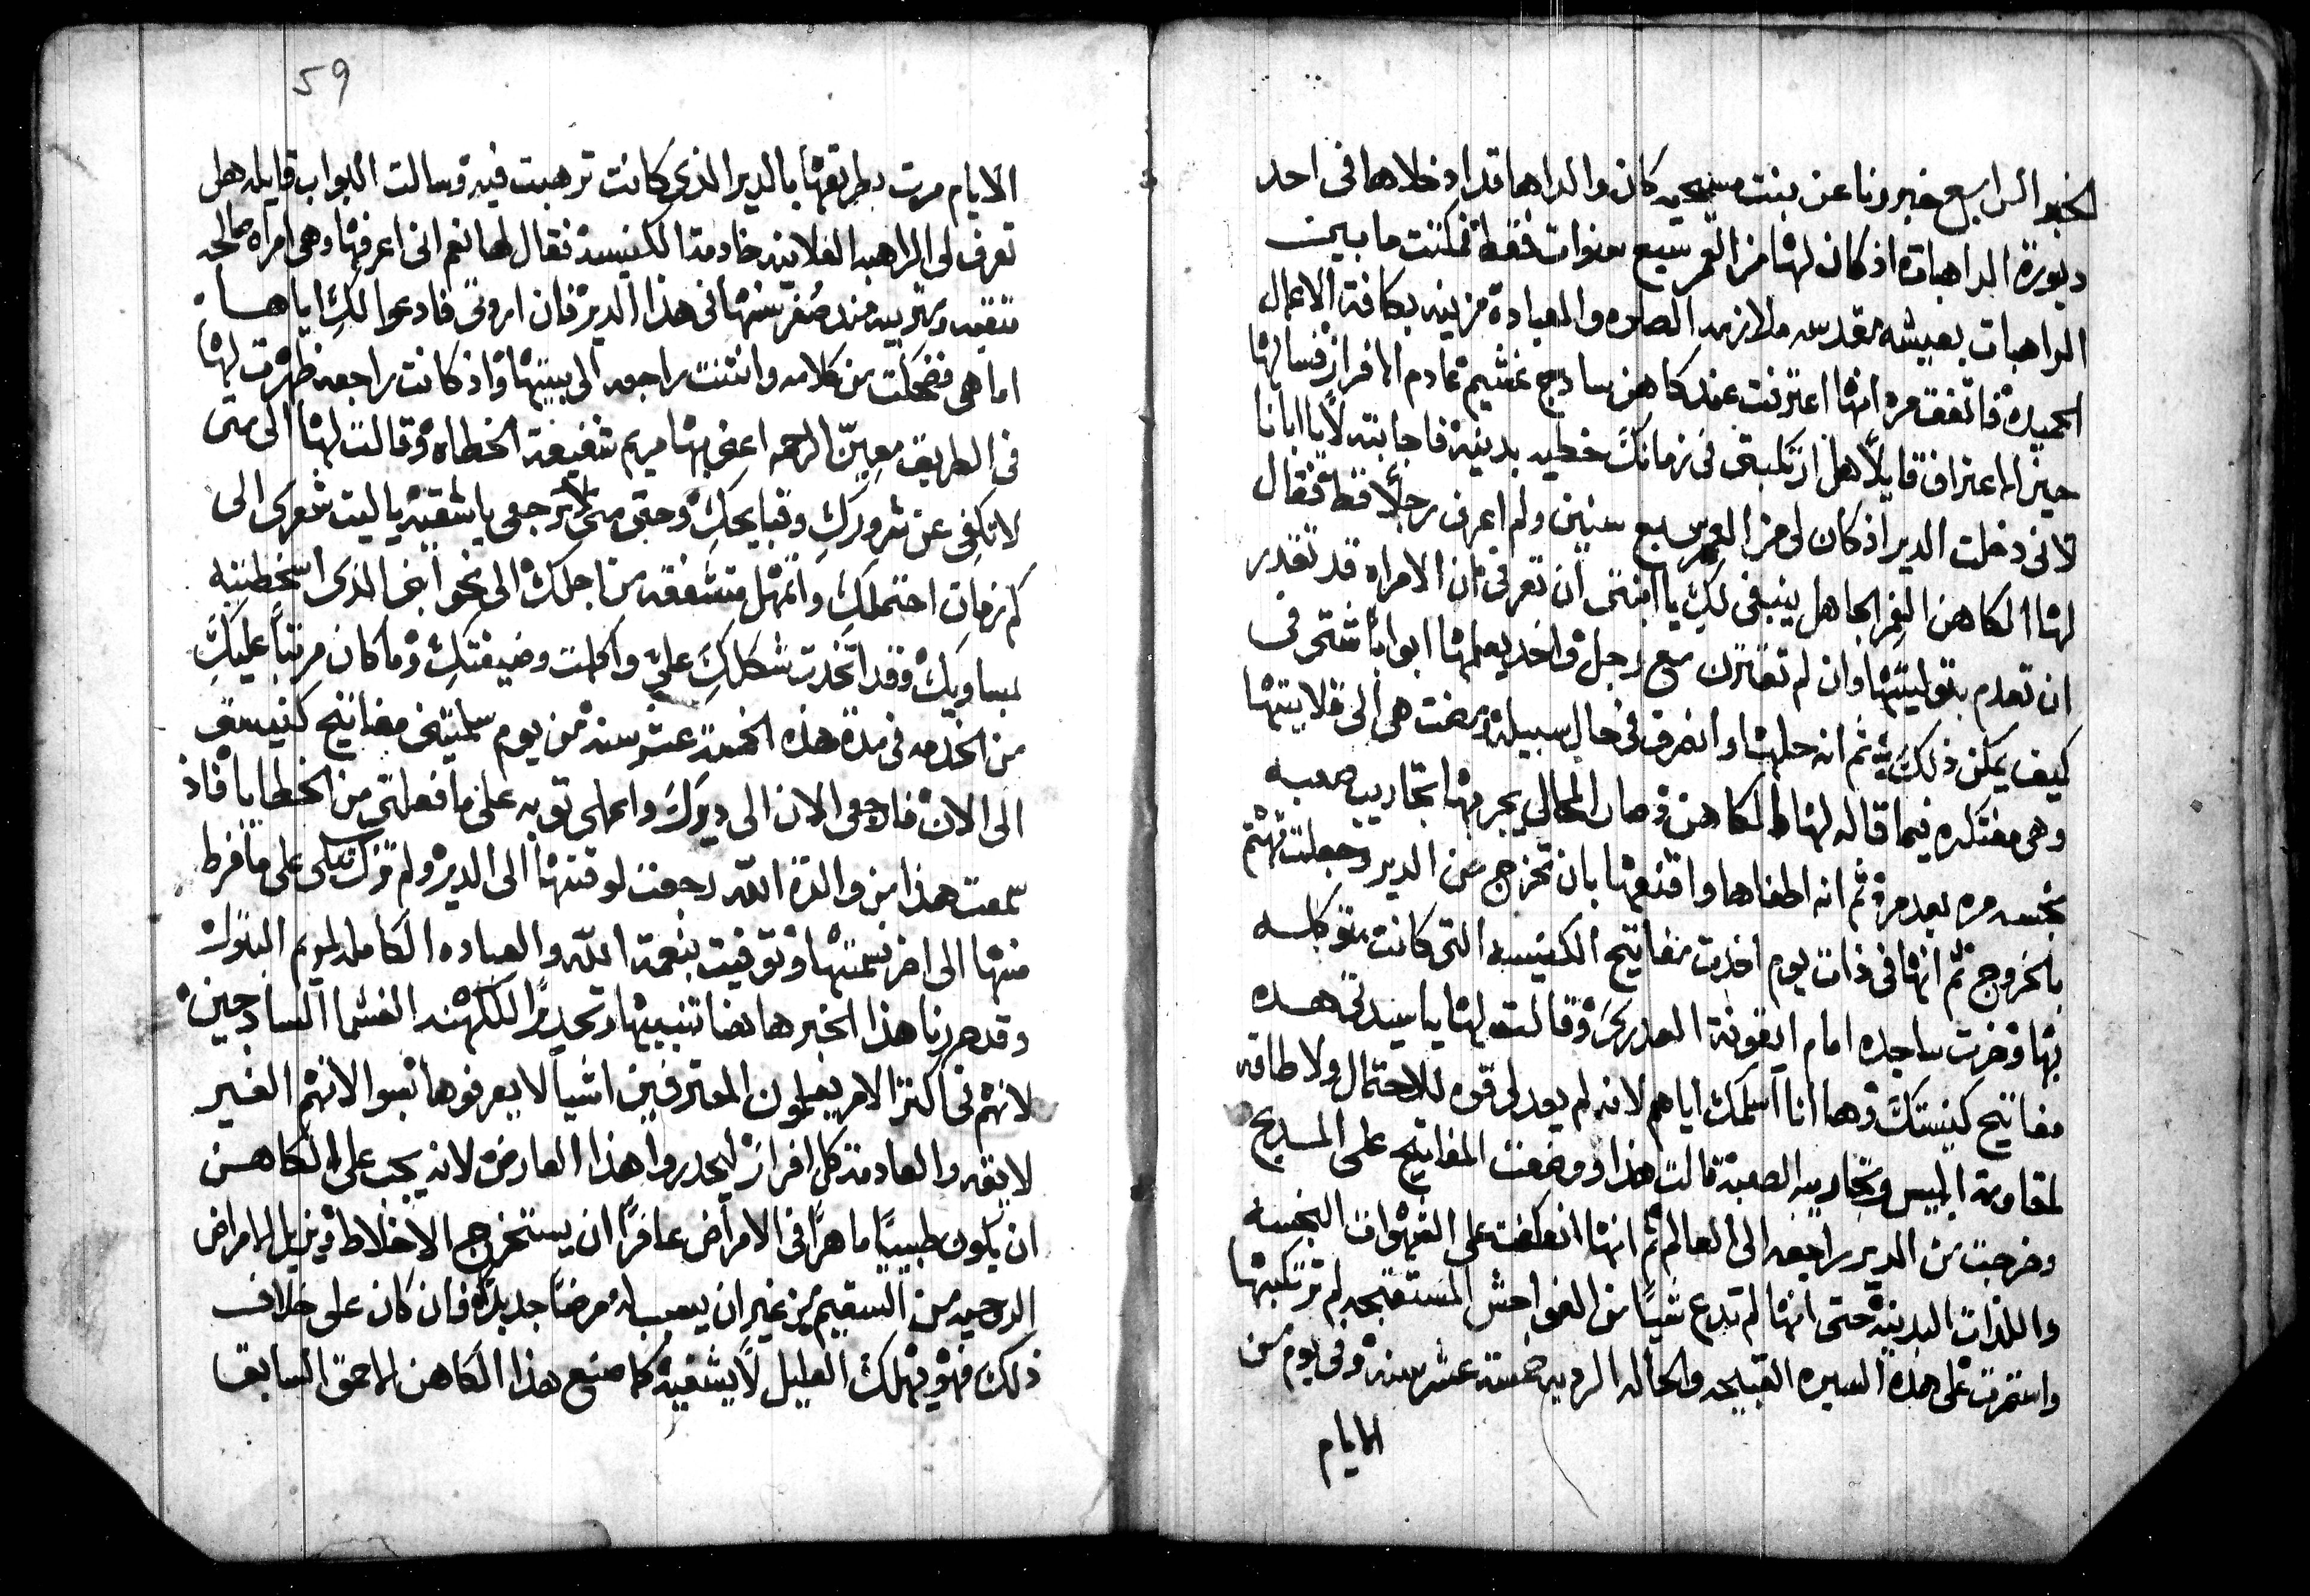 الخبر الرابع خبرونا عن بنت مسيحيه كان والداها قد ادخلاها في احد
ديورة الراهبات اذ كان لها من العمر سبع سنوات فقط فمكثت ما بين
الراهبات بعيشه مقدسه ملازمه الصلوه والعبادة مزينه بكافة الاعمال
الحميدة فاتفق مره انها اعترفت عند كاهن ساذج غشيم عادم الافراز فسالها
حين الاعتراف قايلاً هل ارتكبتي في زمانك خطيه بدنيه فاجابته لا يا ابانا
لاني دخلت الدير اذ كان لي من العمر سبع سنين ولم اعرف رجلاً قط فقال
لها الكاهن الغِر الجاهل ينبغي لكِ يا ابنتي ان تعرفي ان الامراه قد تقدر
ان تعدم بتوليتها وان لم تقترن مع رجل واخذ يعلمها ابواباً شتى في
كيف يمكن ذلك ثم انه حلها وانصرف في حال سبيله ومضت هي الى قلايتها
وهي مفتكره فيما قاله لها الكاهن وصار المحال يجربها بتجاريب صعبه
نجسه مره بعد مرة ثم انه اطغاها واقنعها بان تخرج من الدير وجعلت تهتم
بالخروج ثم انها في ذات يوم اخذت مفاتيح الكنيسه التي كانت متوكله
بها وخرت ساجده امام ايقونة العذري وقالت لها يا سيدتي هذه
مفاتيح كنيستك وها انا اسلمك اياهم لانه لم يعد لي قوه للاحتمال ولا طاقه
لمقاومة ابليس وتجاريبه الصعبة قالت هذا ووضعت المفاتيح على المذبح
وخرجت من الدير راجعه الى العالم ثم انها انعكفت على الشهوات النجسه
واللذات البدنيه حتى انها لم تدع شياً من الفواحش المستقبحه لم ترتكبها
واستمرت على هذه السيره القبيحه والحاله الرديه خمسة عشر سنة وفي يوم من
الايام
59
الايام مرت بطريقها بالدير الذي كانت ترهبت فيه وسالت البواب قايله هل
تعرف لي الراهبه الفلانيه خادمة الكنيسة فقال لها نعم اني اعرفها وهي امراه صالحه
متعبده ومتربيه منذ صُغر سنها في هذا الدير فان اردتي فادعوا لكِ اياها
اما هي فضحكت من كلامه وانثنت راجعه الى بيتها واذ كانت راجعه ظهرت لها
في الطريق معين الرحمه اعني بها مريم شفيعة الخطاه وقالت لها الى متى
لا تكفي عن شرورك وقبايحكِ وحتى متى لا ترجعي يا شقيه يا ليت شعري الى
كم زمان احتملكِ واتمهل متشفقه من اجلك الى نحو ابني الذي اسخطتيه
بمساويكِ وقد اتخذت شكلكِ عليَّ واكملت وضيفتكِ وما كان مرتباً عليكِ
من الخدمه في مدة هذه الخمسة عشر سنه من يوم سلمتيني مفاتيح كنيستي
الى الان فارجعي الان الى ديركَ واعملي توبه على ما فعلتي من الخطايا فاذ
سمعت هذا من والدة الله رجعت لوقتها الى الدير ولم تزل تبكي على ما فرط
منها الى اخر نسمتها وتوفيت بنعمة الله والعباده الكامله لمريم البتول
وقد حررنا هذا الخبر هاهنا تنبيهاً وتحذيراً للكهنه الغشما الساذجين
لانهم في اكثر الامر يعلمون المعترفين اشيا لا يعرفوها بسوالاتهم الغير
لايقه والعادمة كل افراز ليحذروا هذا العارض لانه يجب على الكاهن
ان يكون طبيباً ماهراً في الامراض عارفاً ان يستخرج الاخلاط ويزيل الامراض
الروحيه من السقيم من غير ان يسبب له مرضاً جديداً فان كان على خلاف
ذلك فهو يهلك العليل لا يشفيه كما صنع هذا الكاهن الاحمق السابق